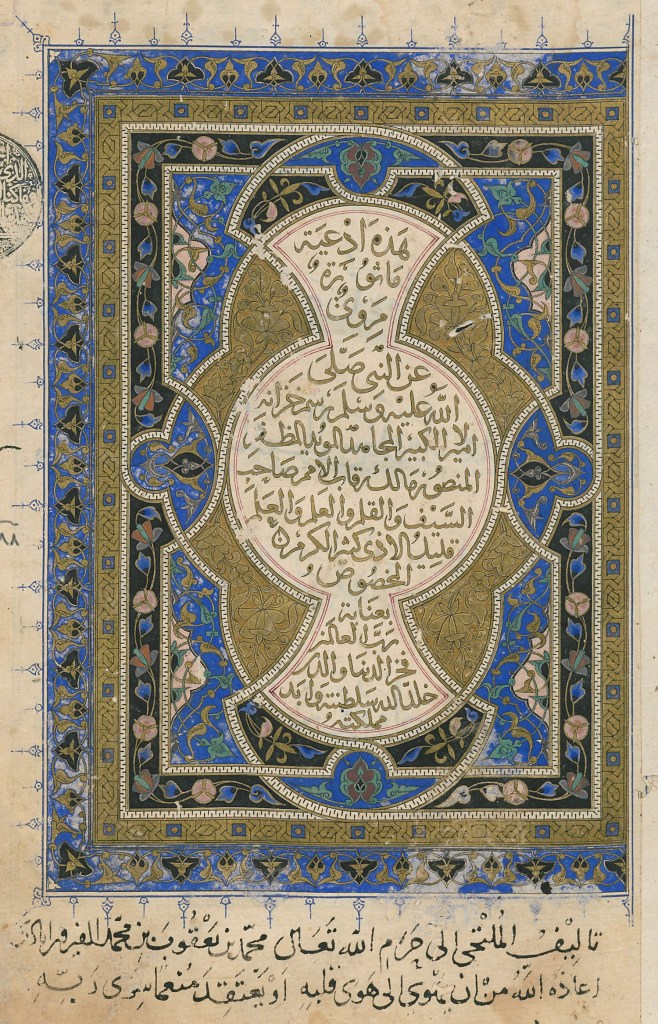 هذه ادعية
ماثورة
مروي
عن النبي صلى
الله عليه وسلم برسم خزانة
امير الكبير المجاهد المؤيد المظفر
المنصور مالك رقاب الامم صاحب
السيف والقلم والعلم والعلم
قليل الاذى كثير الكرم
المخصوص
بعناية
رب العالمين
فخر الدنيا والدين
خلد الله سلطنته وابد
مملكته
تاليف الملتجي الى حرم الله تعالى محمد بن يعقوب بن محمد الفيروزابادي
اعاذه الله من ان يلوي الى هوى قلبه او يعتقد منعما سوى ربه